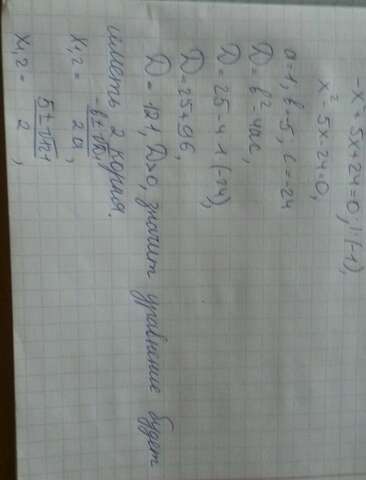 -x² + 5x + 24 = 0, |·(-1),
x² - 5x - 24 = 0,
a = 1, b = -5, c = -24
D = b² - 4ac,
D = 25 - 4·1·(-24),
D = 25 + 96,
D = 121, D>0, значит уравнение будет
иметь 2 корня.
x1,2 = -b ± √D / 2a,
x1,2 = 5 ± √121 / 2,